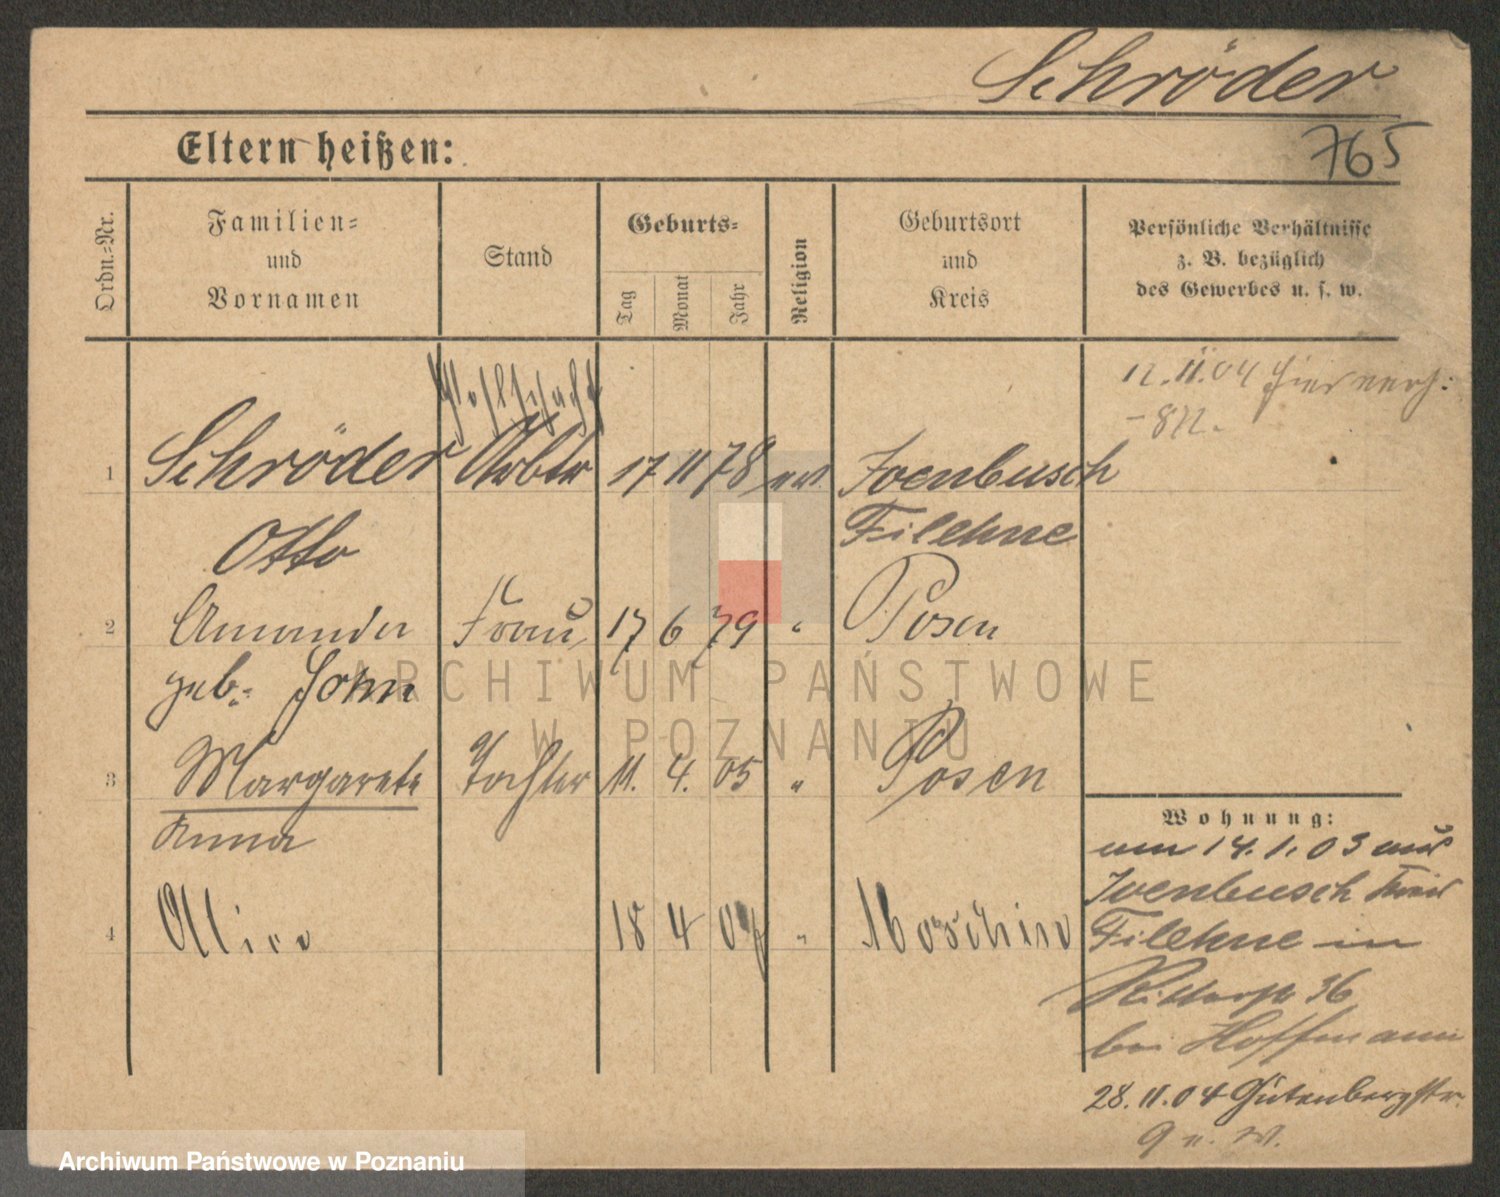 Schröder
765
Eltern heißen:
Ordn.-Nr.
Familien-
und
Vornamen
Stand
Geburts-
Tag
Monat
Jahr
Religion
Geburtsort
und
Kreis
Persönliche Verhältnisse
z. B. bezüglich
des Gewerbes u. s. w.
12.11.04 hier
1 Schröder Arbtr 17 11 78 ev. Ivenbusch
Otto Filehne
2 Amanda Frau 17 6 79 " Posen
geb. John
3 Margarete Tochter 11. 4. 05 " Posen
Anna
4 18 4 07 "
Wohnung:
um 14.1.03 aus
Ivenbusch Kreis
Filehne in
Ritterstr 36
bei Hoffmann
28.11.04 Gutenbergstr.
9 n. W.
ARCHIWUM PAŃSTWOWE
W POZNANIU
Archiwum Państwowe w Poznaniu